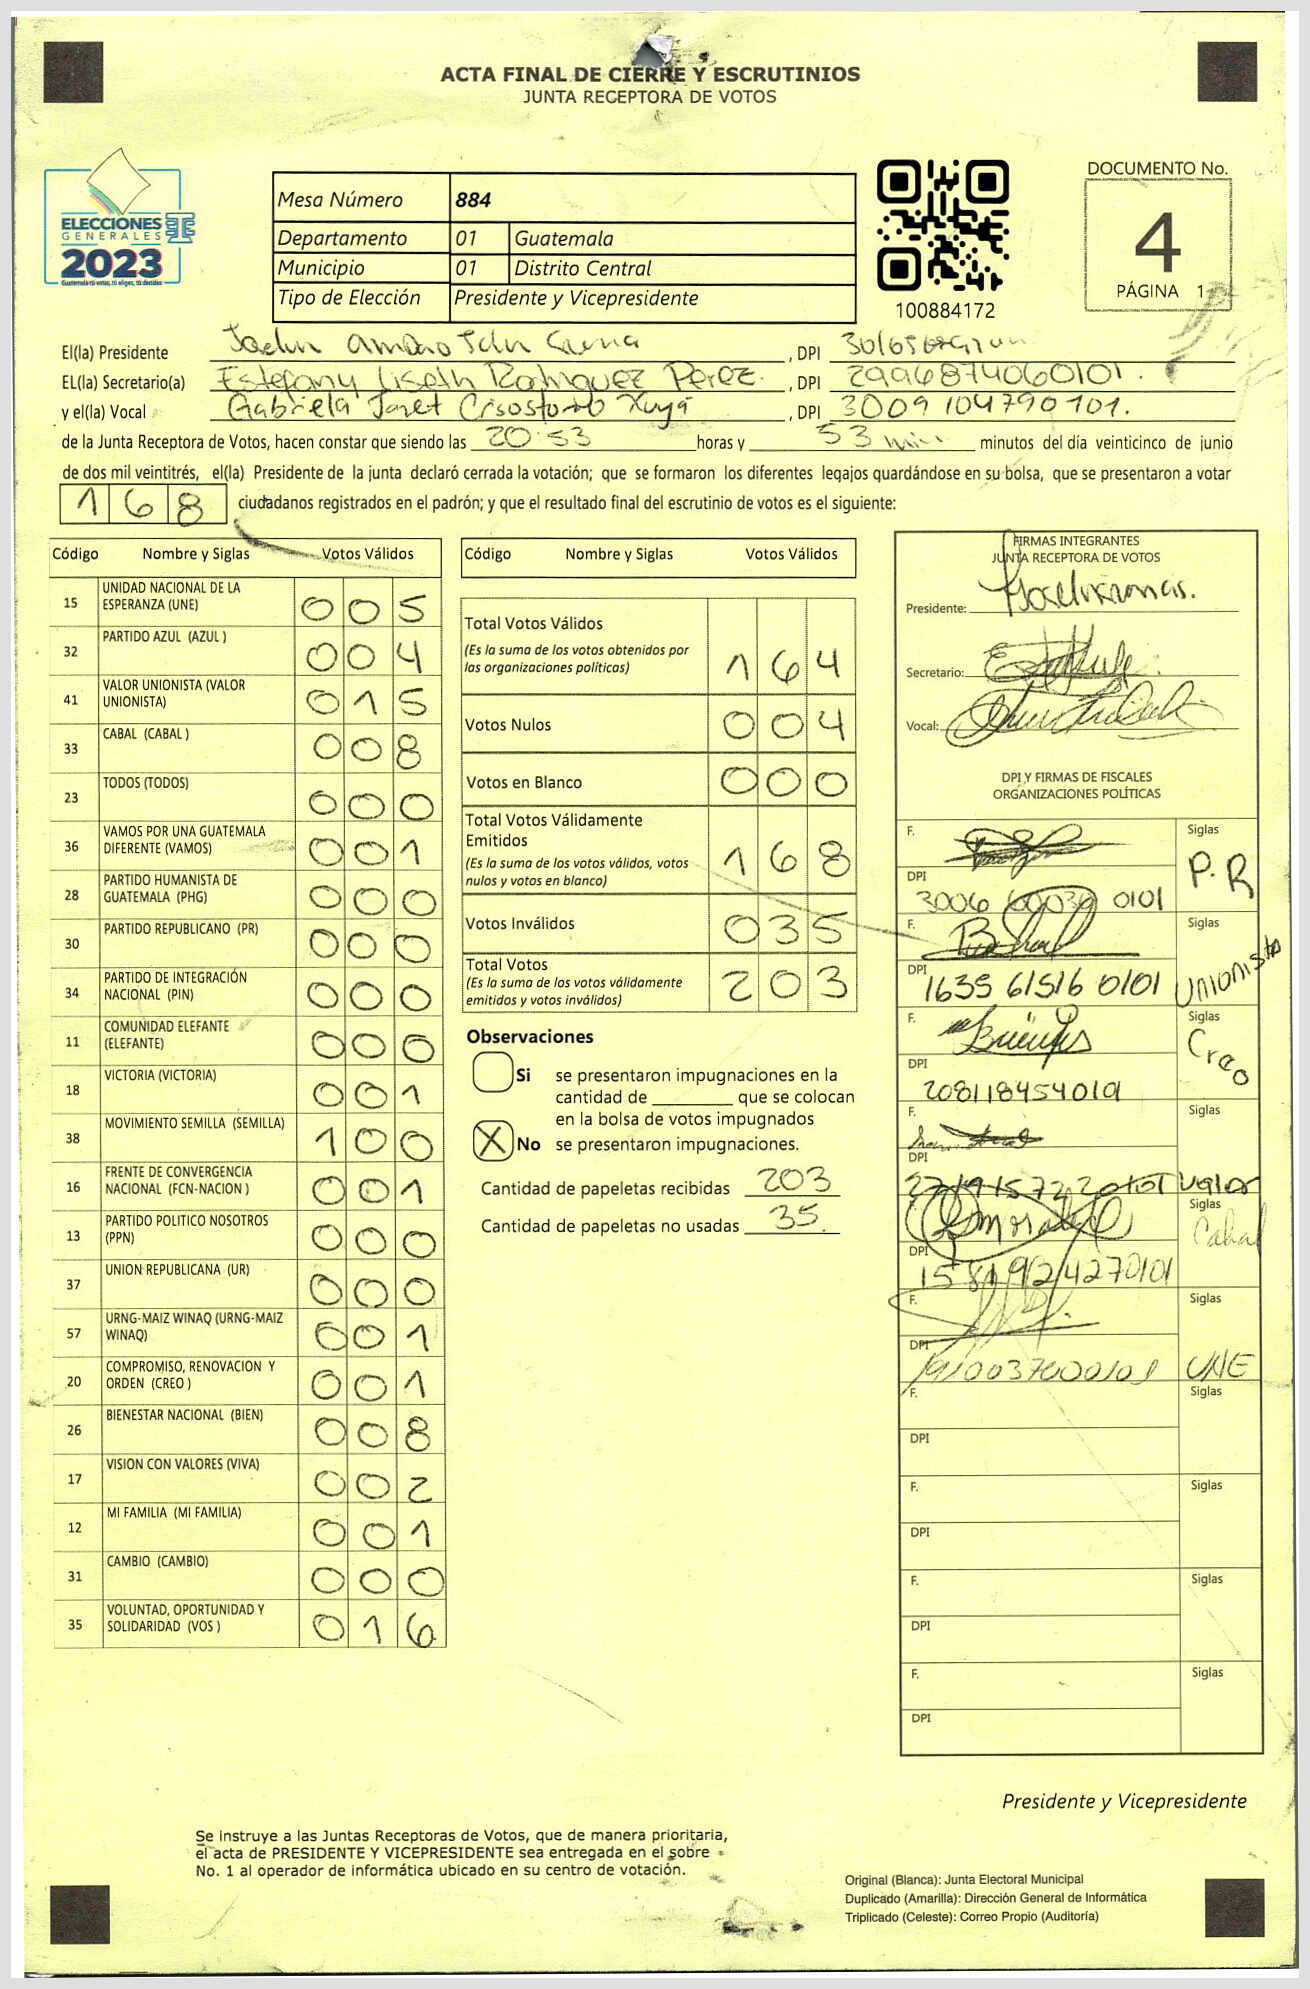 ACTA FINAL DE CIERRE Y ESCRUTINIOS
JUNTA RECEPTORA DE VOTOS
ELECCIONES
GENERALES
2023
Guatemala tú votas, tú eliges, tú decides
Mesa Número 884
Departamento 01 Guatemala
Municipio 01 Distrito Central
Tipo de Elección Presidente y Vicepresidente
100884172
DOCUMENTO No.
4
PÁGINA 1
El(la) Presidente , DPI
EL(la) Secretario(a) Estefany Liseth Rodriguez Perez. , DPI 2996874060101.
y el(la) Vocal Gabriela Janet Crisostomo Xuyá , DPI 3009104790101.
de la Junta Receptora de Votos, hacen constar que siendo las 20:53 horas y 53 min minutos del día veinticinco de junio
de dos mil veintitrés, el(la) Presidente de la junta declaró cerrada la votación; que se formaron los diferentes legajos quardándose en su bolsa, que se presentaron a votar
168 ciudadanos registrados en el padrón; y que el resultado final del escrutinio de votos es el siguiente:
Código Nombre y Siglas Votos Válidos
15 UNIDAD NACIONAL DE LA ESPERANZA (UNE) 005
32 PARTIDO AZUL (AZUL ) 004
41 VALOR UNIONISTA (VALOR UNIONISTA) 015
33 CABAL (CABAL ) 008
23 TODOS (TODOS) 000
36 VAMOS POR UNA GUATEMALA DIFERENTE (VAMOS) 001
28 PARTIDO HUMANISTA DE GUATEMALA (PHG) 000
30 PARTIDO REPUBLICANO (PR) 000
34 PARTIDO DE INTEGRACIÓN NACIONAL (PIN) 000
11 COMUNIDAD ELEFANTE (ELEFANTE) 000
18 VICTORIA (VICTORIA) 001
38 MOVIMIENTO SEMILLA (SEMILLA) 100
16 FRENTE DE CONVERGENCIA NACIONAL (FCN-NACION ) 001
13 PARTIDO POLITICO NOSOTROS (PPN) 000
37 UNION REPUBLICANA (UR) 000
57 URNG-MAIZ WINAQ (URNG-MAIZ WINAQ) 001
20 COMPROMISO, RENOVACION Y ORDEN (CREO ) 001
26 BIENESTAR NACIONAL (BIEN) 008
17 VISION CON VALORES (VIVA) 002
12 MI FAMILIA (MI FAMILIA) 001
31 CAMBIO (CAMBIO) 000
35 VOLUNTAD, OPORTUNIDAD Y SOLIDARIDAD (VOS ) 016
Código Nombre y Siglas Votos Válidos
Total Votos Válidos
(Es la suma de los votos obtenidos por
las organizaciones políticas) 164
Votos Nulos 004
Votos en Blanco 000
Total Votos Válidamente
Emitidos
(Es la suma de los votos válidos, votos
nulos y votos en blanco) 168
Votos Inválidos 035
Total Votos
(Es la suma de los votos válidamente
emitidos y votos inválidos) 203
Observaciones
Si se presentaron impugnaciones en la
cantidad de ________ que se colocan
en la bolsa de votos impugnados
X No se presentaron impugnaciones.
Cantidad de papeletas recibidas 203
Cantidad de papeletas no usadas 35.
FIRMAS INTEGRANTES
JUNTA RECEPTORA DE VOTOS
Presidente:
Secretario:
Vocal:
DPI Y FIRMAS DE FISCALES
ORGANIZACIONES POLÍTICAS
F. Siglas P.R
DPI 0101
F. Siglas Unionista
DPI 1635 61516 0101
F. Siglas Creo
DPI 208118454019
F. Siglas Valor
DPI
F. Siglas Cabal
DPI 1581924270101
F. Siglas UNE
DPI
F. Siglas
DPI
F. Siglas
DPI
F. Siglas
DPI
F. Siglas
DPI
Presidente y Vicepresidente
Se instruye a las Juntas Receptoras de Votos, que de manera prioritaria,
el acta de PRESIDENTE Y VICEPRESIDENTE sea entregada en el sobre
No. 1 al operador de informática ubicado en su centro de votación.
Original (Blanca): Junta Electoral Municipal
Duplicado (Amarilla): Dirección General de Informática
Triplicado (Celeste): Correo Propio (Auditoría)